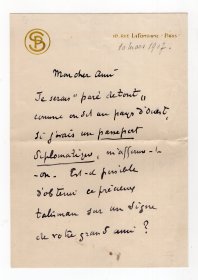 SB
10 RUE LAFONTAINE - PARIS
10 Mars 1907.
Mon cher Ami
Je serais "paré de tout"
comme on dit au pays d'Ouest,
si j'avais un passeport
diplomatique, m'affirme-t-
-on. Est-il possible
d'obtenir ce précieux
talisman sur un signe
de votre grand ami ?